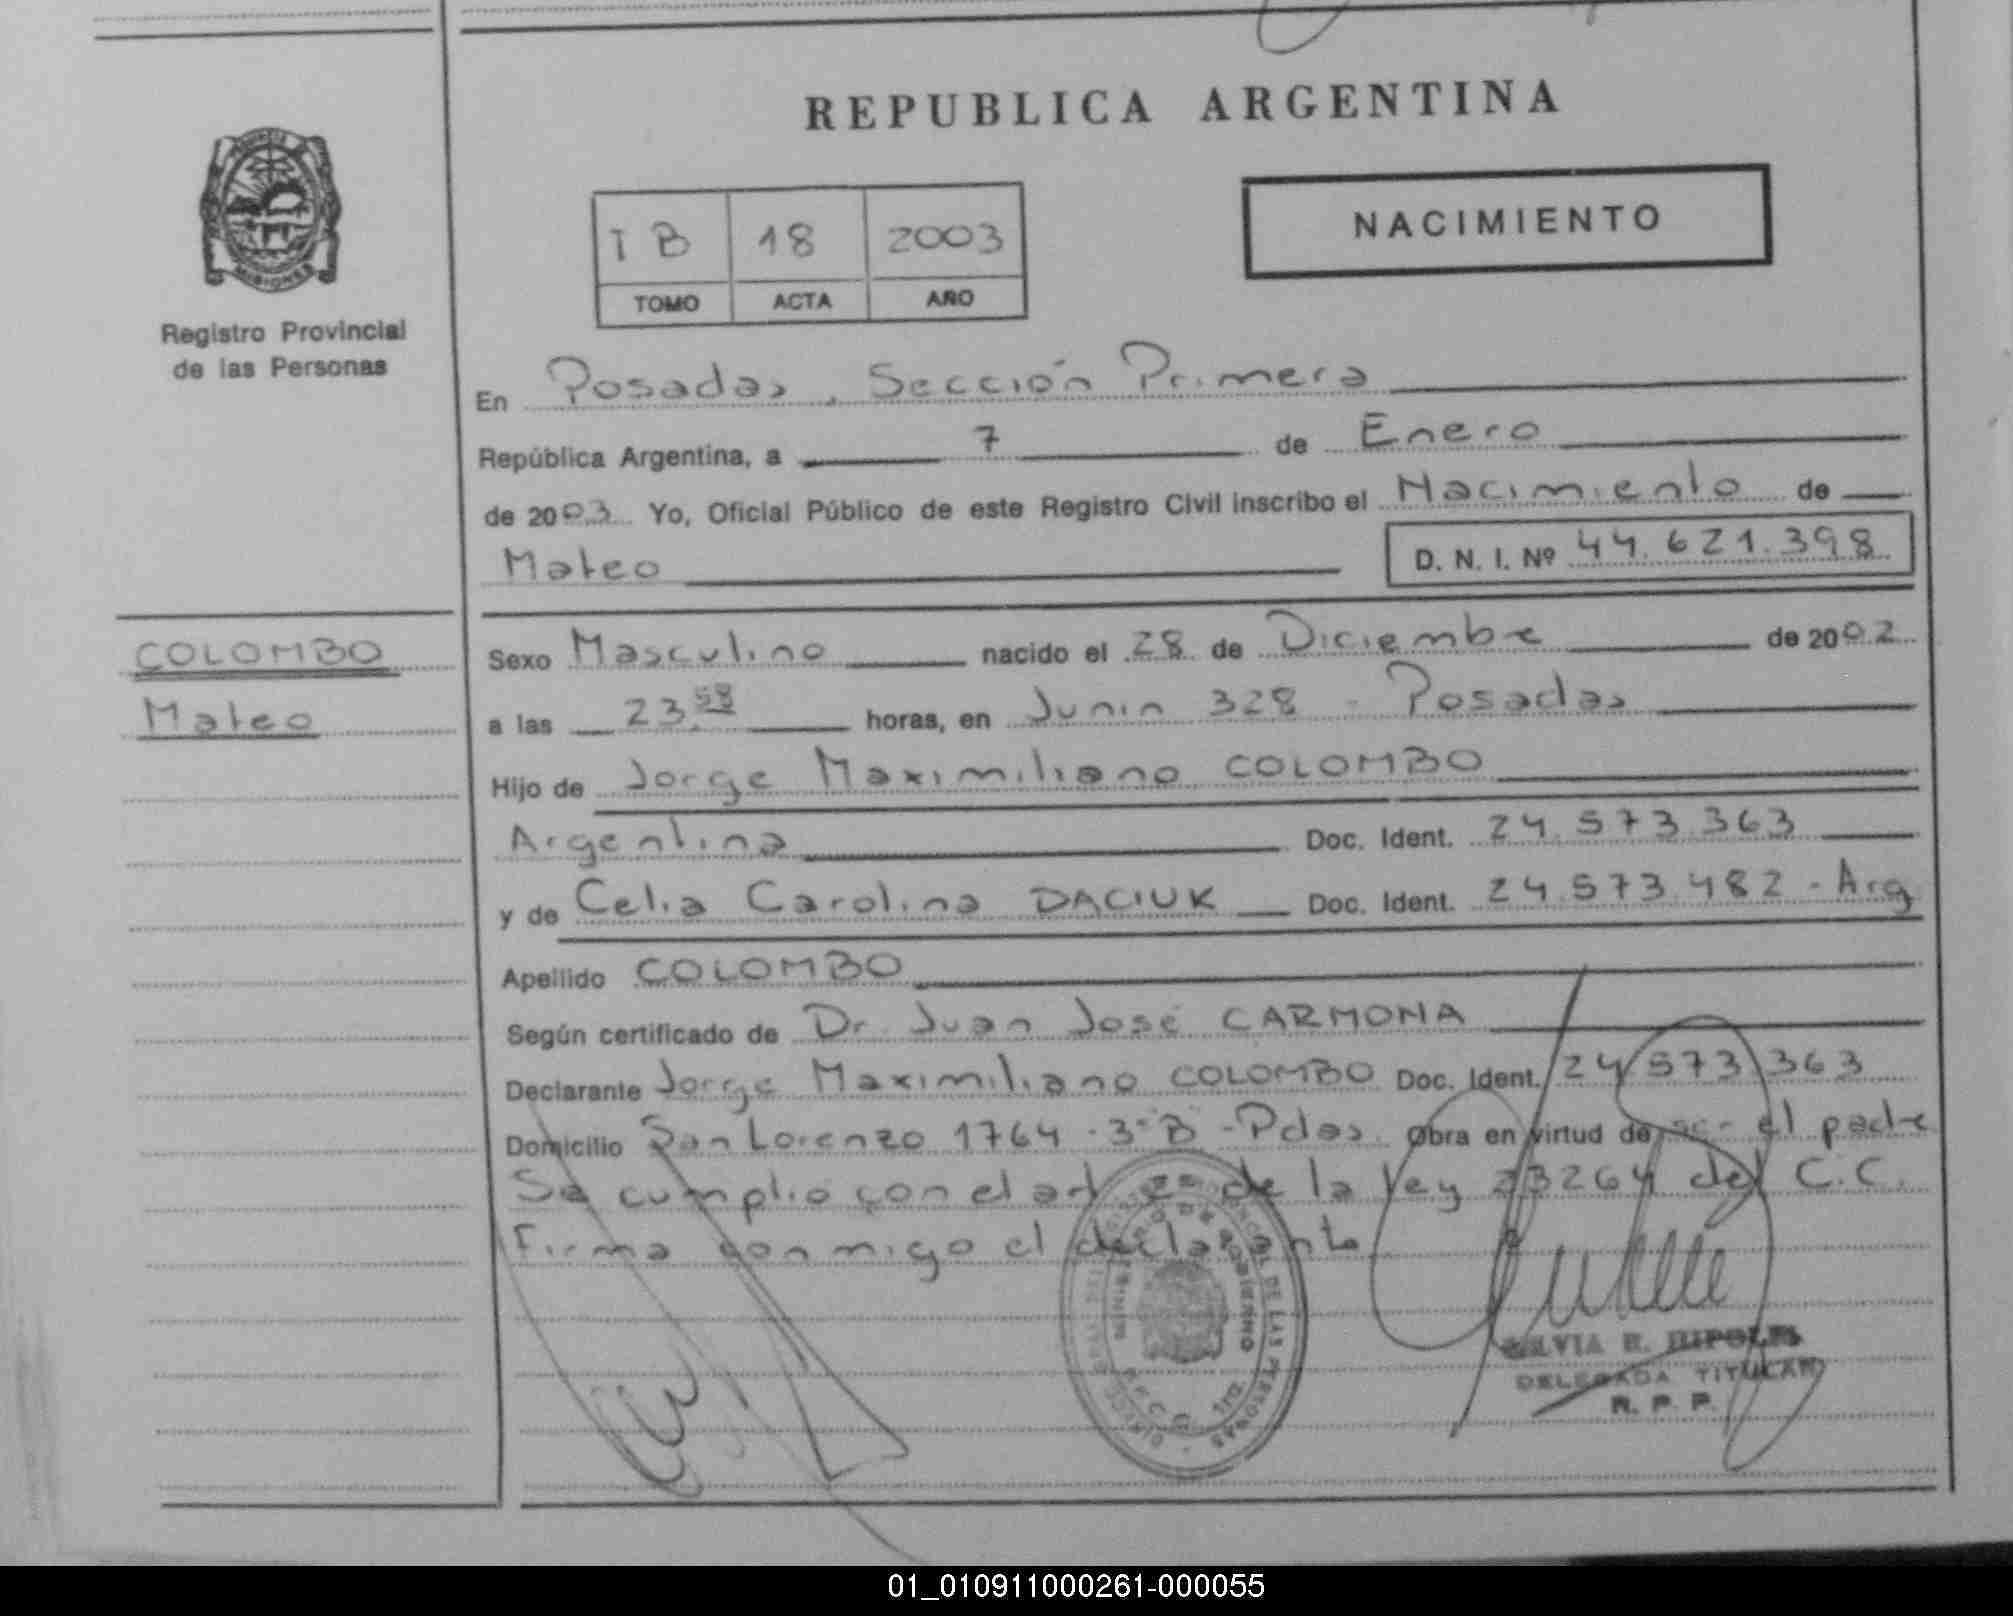 REPUBLICA ARGENTINA
NACIMIENTO
T B 18 2003
TOMO ACTA AÑO
MISIONES
Registro Provincial
de las Personas
En Posadas, Sección Primera
República Argentina, a 7 de Enero
de 2003 Yo, Oficial Público de este Registro Civil inscribo el Nacimiento de
Mateo D. N. I. Nº 44.621.398
COLOMBO
Mateo
Sexo Masculino nacido el 28 de Diciembre de 2002
a las 23,58 horas, en Junin 328 - Posadas
Hijo de Jorge Maximiliano COLOMBO
Argentina Doc. Ident. 24.573.363
y de Celia Carolina DACIUK Doc. Ident. 24.573.482 - Arg
Apellido COLOMBO
Según certificado de Dr. Juan José CARMONA
Declarante Jorge Maximiliano COLOMBO Doc. Ident. 24 573 363
Domicilio San Lorenzo 1764 - 3º B - Pdas. Obra en virtud de ser el padre
Se cumplió con el art de la ley 23264 del C.C.
Firma conmigo el declarante
MINISTERIO DE GOBIERNO
DE LAS PERSONAS
SILVIA E.
DELEGADA TITULAR
R. P. P.
01_010911000261-000055